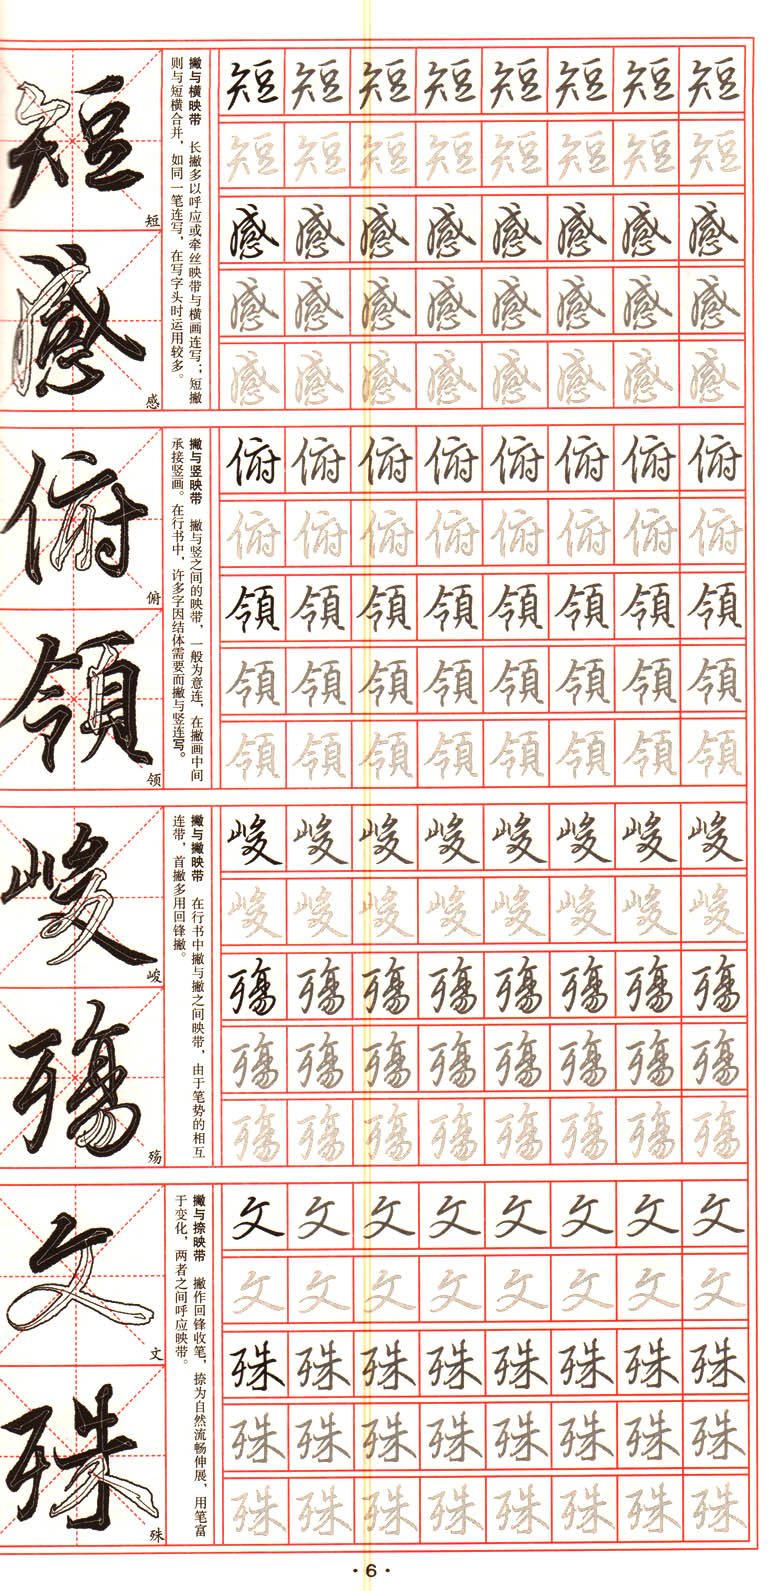 短
感
撇与横映带　长撇多以呼应或牵丝映带与横画连写；短撇
则与短横合并，如同一笔连写，在写字头时运用较多。
短短短短短短短短
短短短短短短短短
感感感感感感感感
感感感感感感感感
感感感感感感感感
俯
领
撇与竖映带　撇与竖之间的映带，一般为意连，在撇画中间
承接竖画。在行书中，许多字因结体需要而撇与竖连写。
俯俯俯俯俯俯俯俯
俯俯俯俯俯俯俯俯
領領領領領領領領
領領領領領領領領
領領領領領領領領
峻
殇
撇与撇映带　在行书中撇与撇之间映带，由于笔势的相互
连带，首撇多用回锋撇。
峻峻峻峻峻峻峻峻
峻峻峻峻峻峻峻峻
殤殤殤殤殤殤殤殤
殤殤殤殤殤殤殤殤
殤殤殤殤殤殤殤殤
文
殊
撇与捺映带　撇作回锋收笔，捺为自然流畅伸展，用笔富
于变化，两者之间呼应映带。
文文文文文文文文
文文文文文文文文
殊殊殊殊殊殊殊殊
殊殊殊殊殊殊殊殊
殊殊殊殊殊殊殊殊
·6·